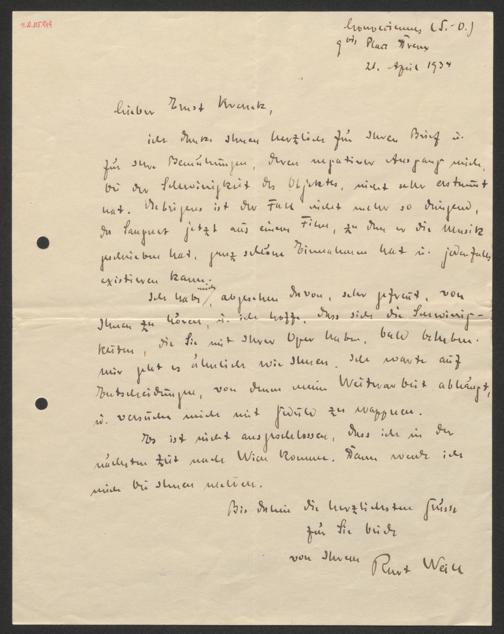 Louveciennes (S.-O.)
9bis Place Dreux
21. April 1934
Lieber Ernst Krenek,
ich danke Ihnen herzlich für Ihren Brief u.
für Ihre Bemühungen, deren negativer Ausgang mich,
bei der Schwierigkeit des Objektes, nicht sehr erstaunt
hat. Uebrigens ist der Fall nicht mehr so dringend,
da Sauguet jetzt aus einem Film, zu dem er die Musik
geschrieben hat, ganz schöne Einnahmen hat u. jedenfalls
existieren kann.
Ich habe mich, abgesehen davon, sehr gefreut, von
Ihnen zu hören, u. ich hoffe, dass sich die Schwierig-
keiten, die Sie mit Ihrer Oper haben, bald beheben.
Mir geht es ähnlich wie Ihnen. Ich warte auf
Entscheidungen, von denen meine Weiterarbeit abhängt,
u. versuche mich mit Geduld zu wappnen.
Es ist nicht ausgeschlossen, dass ich in der
nächsten Zeit nach Wien komme. Dann werde ich
mich bei Ihnen melden.
Bis dahin die herzlichsten Grüsse
für Sie beide
von Ihrem Kurt Weill